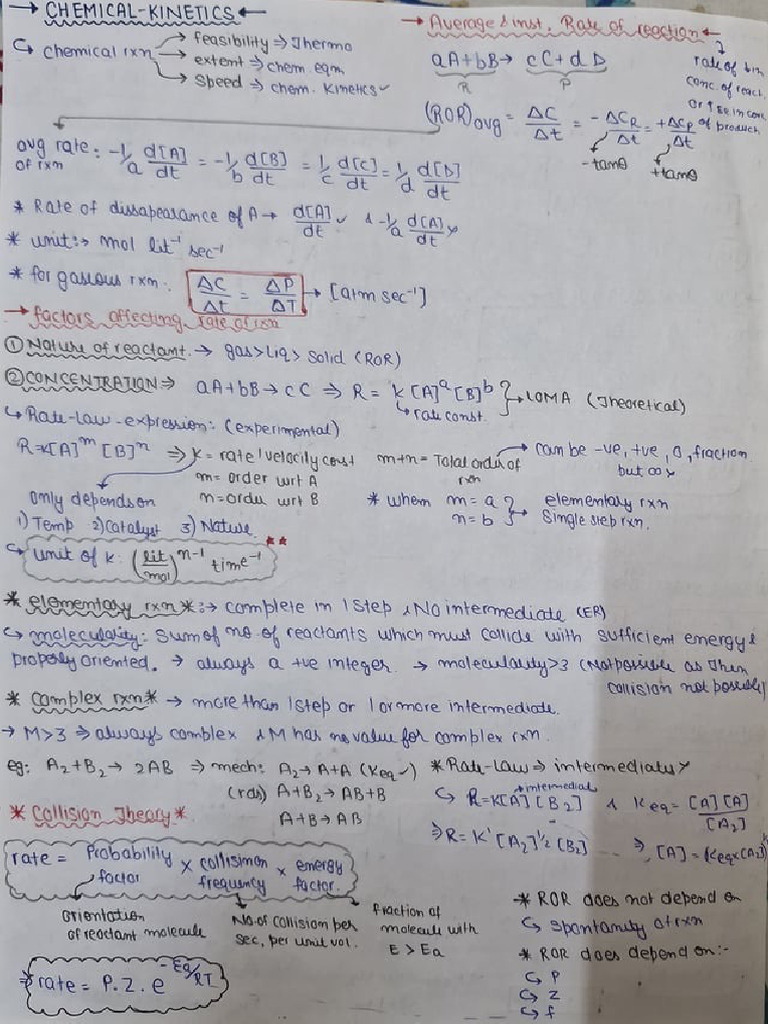 → CHEMICAL-KINETICS ←
↳ chemical rxn → feasibility ⇒ Thermo
→ extent ⇒ chem. eqm
→ Speed ⇒ chem. Kinetics ✓
→ Average & inst. Rate of reaction ←
aA+bB → cC+dD
R P
rate of
conc. of react.
or ↑se in conc
of product
(ROR)avg = ΔC/Δt = -ΔCR/Δt = +ΔCP/Δt
-tanθ +tanθ
avg rate of rxn : -1/a d[A]/dt = -1/b d[B]/dt = 1/c d[C]/dt = 1/d d[D]/dt
* Rate of dissapearance of A → d[A]/dt ✓ & -1/a d[A]/dt ×
* unit :→ mol lit⁻¹ sec⁻¹
* for gaseous rxn. ΔC/Δt = ΔP/ΔT → [atm sec⁻¹]
→ factors affecting rate of rxn
① Nature of reactant. → gas > Liq > Solid (ROR)
② CONCENTRATION ⇒ aA+bB → cC ⇒ R = K [A]ᵃ [B]ᵇ } → LOMA (Theoretical)
↳ rate const.
↳ Rate-Law-expression: (experimental)
R=K[A]ᵐ [B]ⁿ ⇒ K = rate/velocity const
m = order wrt A
n = order wrt B
m+n = Total order of rxn → can be -ve, +ve, 0, fraction
but ∞ ×
only depends on
1) Temp 2) Catalyst 3) Nature
* when m = a
n = b } → elementary rxn
Single step rxn.
↳ unit of K: (lit/mol)ⁿ⁻¹ time⁻¹ **
* elementary rxn * :→ complete in 1 step & No intermediate (ER)
↳ molecularity: Sum of no. of reactants which must collide with sufficient energy &
properly oriented. → always a +ve integer. → molecularity>3 (Not possible as then
collision not possible)
* Complex rxn * → more than 1 step or 1 or more intermediate.
→ M>3 ⇒ always complex & M has no value for complex rxn.
eg: A₂+B₂ → 2AB ⇒ mech: A₂ → A+A (Keq ✓)
(rds) A+B₂ → AB+B
A+B → AB
* Rate-Law ⇒ intermediate ×
↳ R=K[A] [B₂] & Keq = [A][A]/[A₂]
intermediate
⇒ R = K' [A₂]^1/2 [B₂] ⇒ [A] = √Keq×[A₂]
* Collision Theory *
rate = Probability factor × collision frequency × energy factor.
Orientation
of reactant molecule
No. of collision per
sec. per unit vol.
fraction of
molecule with
E > Ea
⇒ rate = P. Z. e^-Ea/RT
* ROR does not depend on
↳ spontanity of rxn
* ROR does depend on:-
↳ P
↳ Z
↳ f